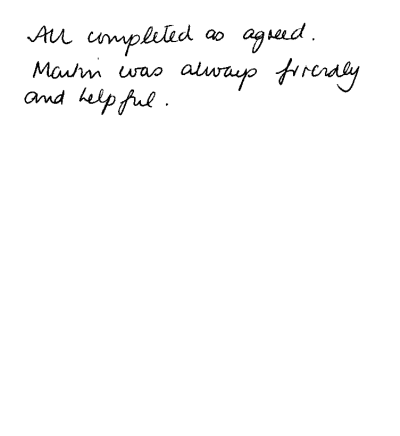 All completed as agreed.
Martin was always friendly
and helpful.